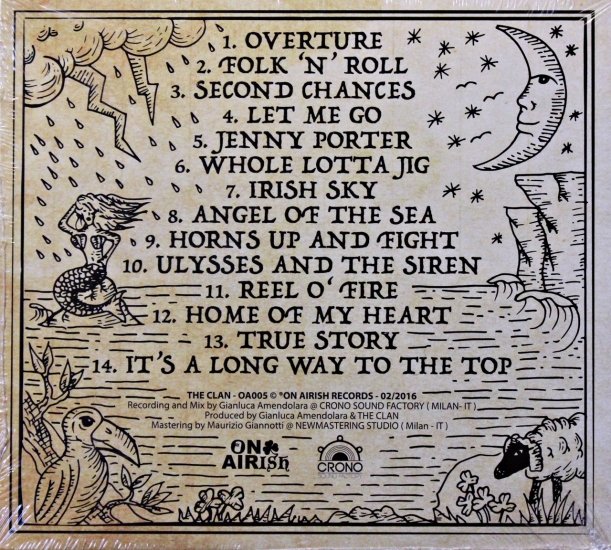 1. OVERTURE
2. FOLK 'N' ROLL
3. SECOND CHANCES
4. LET ME GO
5. JENNY PORTER
6. WHOLE LOTTA JIG
7. IRISH SKY
8. ANGEL OF THE SEA
9. HORNS UP AND FIGHT
10. ULYSSES AND THE SIREN
11. REEL O' FIRE
12. HOME OF MY HEART
13. TRUE STORY
14. IT'S A LONG WAY TO THE TOP
THE CLAN - OA005 © ℗ON AIRISH RECORDS - 02/2016
Recording and Mix by Gianluca Amendolara @ CRONO SOUND FACTORY ( MILAN- IT )
Produced by Gianluca Amendolara & THE CLAN
Mastering by Maurizio Giannotti @ NEWMASTERING STUDIO ( Milan - IT )
ON AIRISH
CRONO
SOUND FACTORY